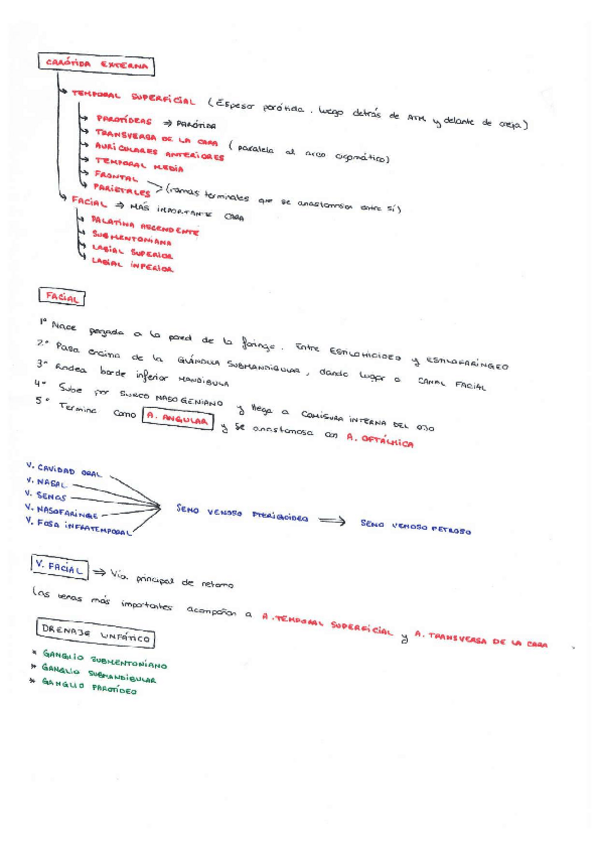 CARÓTIDA EXTERNA
TEMPORAL SUPERFICIAL (Espesor parótida, luego detrás de ATM y delante de oreja)
PAROTÍDEAS ⇒ PARÓTIDA
TRANSVERSA DE LA CARA (paralela al arco cigomático)
AURICULARES ANTERIORES
TEMPORAL MEDIA
FRONTAL
PARIETALES > (ramas terminales que se anastomosan entre sí)
FACIAL ⇒ MÁS IMPORTANTE CARA
PALATINA ASCENDENTE
SUBMENTONIANA
LABIAL SUPERIOR
LABIAL INFERIOR
FACIAL
1º Nace pegada a la pared de la faringe. Entre ESTILOHIOIDEO y ESTILOFARÍNGEO
2º Pasa encima de la GLÁNDULA SUBMANDIBULAR, dando lugar a CANAL FACIAL
3º Rodea borde inferior MANDIBULA
4º Sube por SURCO NASOGENIANO y llega a COMISURA INTERNA DEL OJO
5º Termina como A. ANGULAR y se anastomosa con A. OFTÁLMICA
V. CAVIDAD ORAL
V. NASAL
V. SENOS
V. NASOFARINGE
V. FOSA INFRATEMPORAL
SENO VENOSO PTERIGOIDEO ⇒ SENO VENOSO PETROSO
V. FACIAL ⇒ Vía principal de retorno
Las venas más importantes acompañan a A. TEMPORAL SUPERFICIAL y A. TRANSVERSA DE LA CARA
DRENAJE LINFÁTICO
* GANGLIO SUBMENTONIANO
* GANGLIO SUBMANDIBULAR
* GANGLIO PAROTÍDEO